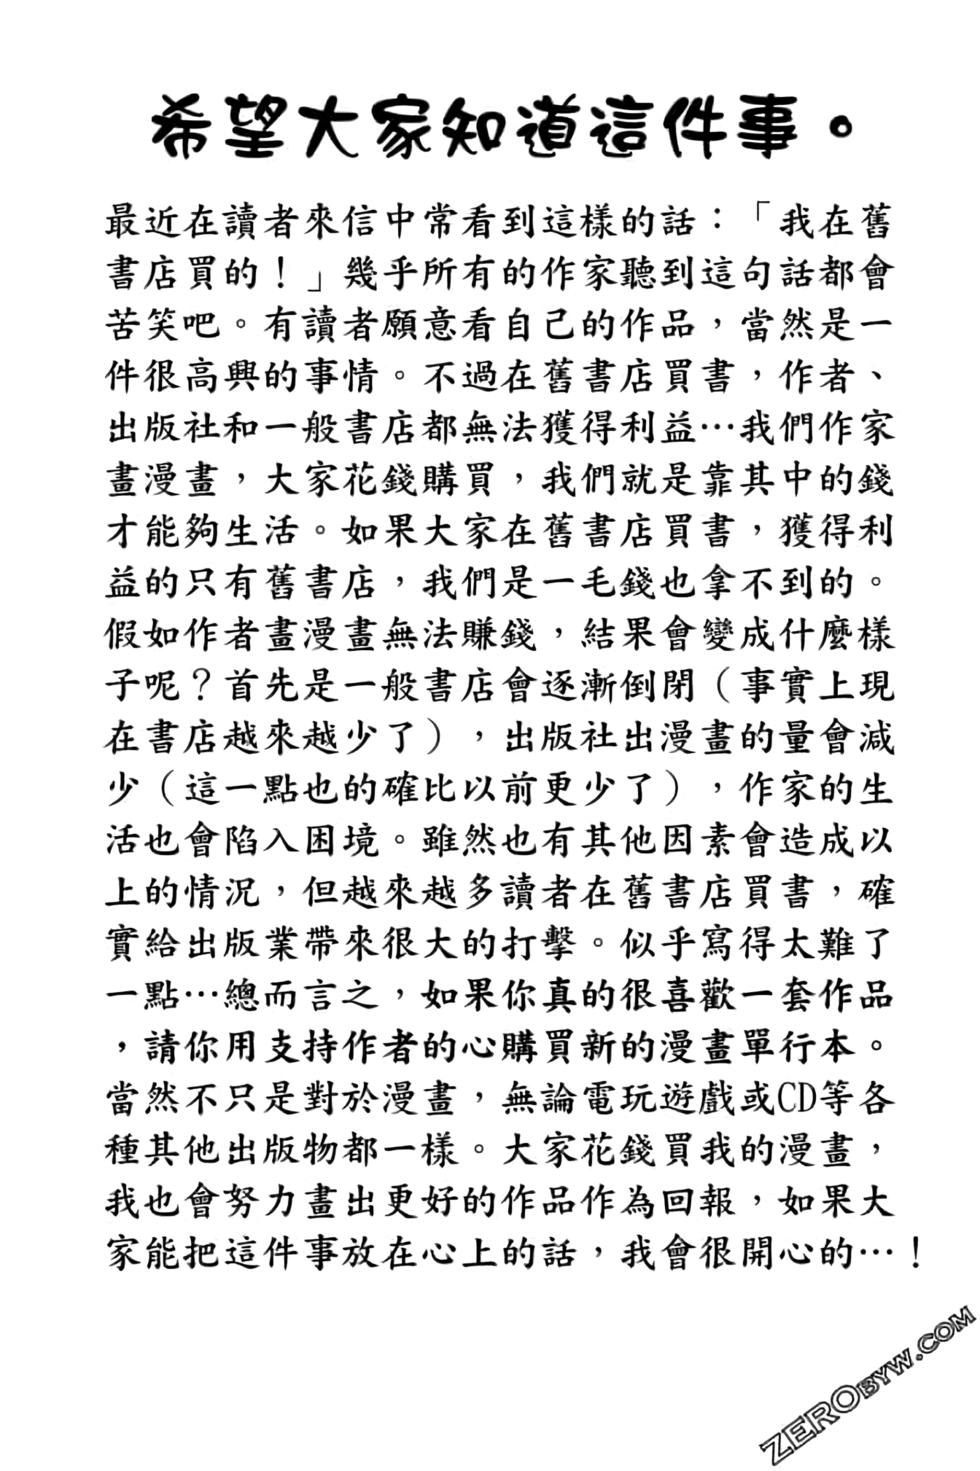 希望大家知道這件事。
最近在讀者來信中常看到這樣的話：「我在舊
書店買的！」幾乎所有的作家聽到這句話都會
苦笑吧。有讀者願意看自己的作品，當然是一
件很高興的事情。不過在舊書店買書，作者、
出版社和一般書店都無法獲得利益…我們作家
畫漫畫，大家花錢購買，我們就是靠其中的錢
才能夠生活。如果大家在舊書店買書，獲得利
益的只有舊書店，我們是一毛錢也拿不到的。
假如作者畫漫畫無法賺錢，結果會變成什麼樣
子呢？首先是一般書店會逐漸倒閉（事實上現
在書店越來越少了），出版社出漫畫的量會減
少（這一點也的確比以前更少了），作家的生
活也會陷入困境。雖然也有其他因素會造成以
上的情況，但越來越多讀者在舊書店買書，確
實給出版業帶來很大的打擊。似乎寫得太難了
一點…總而言之，如果你真的很喜歡一套作品
，請你用支持作者的心購買新的漫畫單行本。
當然不只是對於漫畫，無論電玩遊戲或CD等各
種其他出版物都一樣。大家花錢買我的漫畫，
我也會努力畫出更好的作品作為回報，如果大
家能把這件事放在心上的話，我會很開心的…！
ZEROBYW.COM